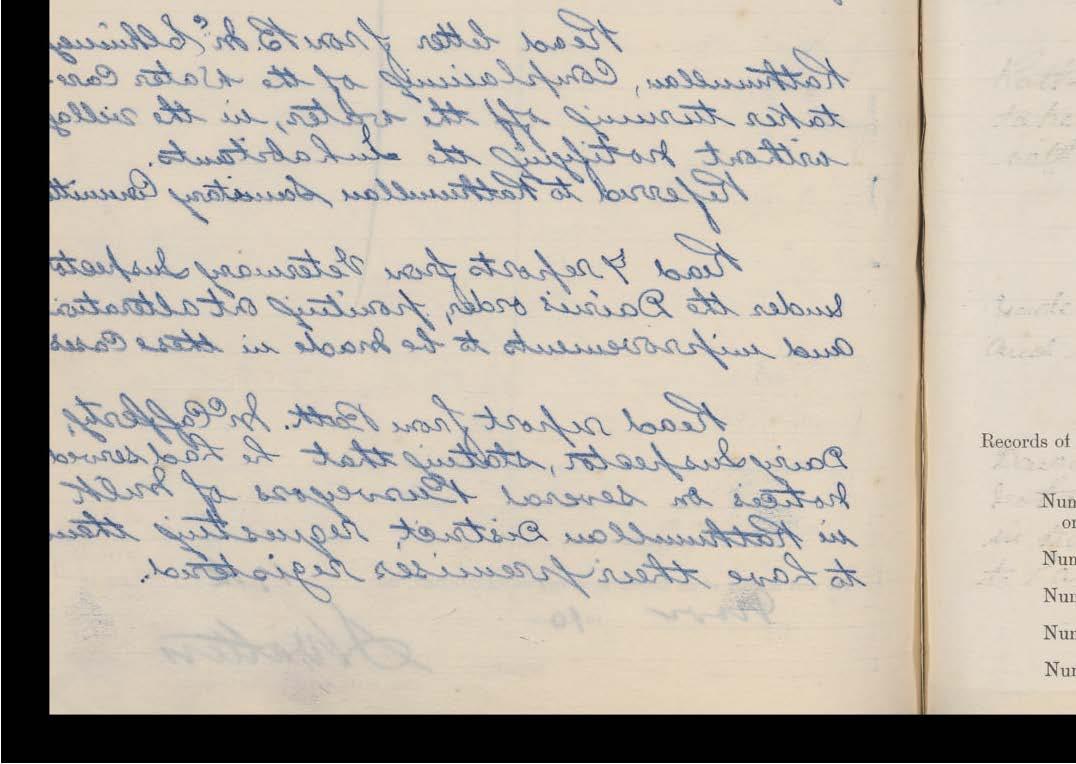 Read letter from B. Mc
Rathmullan, Complaining of the Water Care-
taker turning off the water, in the villag
without notifying the Inhabitants.
Referred to Rathmullan Sanitary Committe
Read 7 reports from Veterinary Inspecto
under the Dairies order, pointing out alteratio
and improvements to be made in these Cases
Read report from Patk. McCafferty,
Dairy Inspector, stating that he had served
notices on several Purveyors of Milk
in Rathmullan District, requesting them
to have their premises registered.
Records of
Num
or
Num
Num
Num
Num